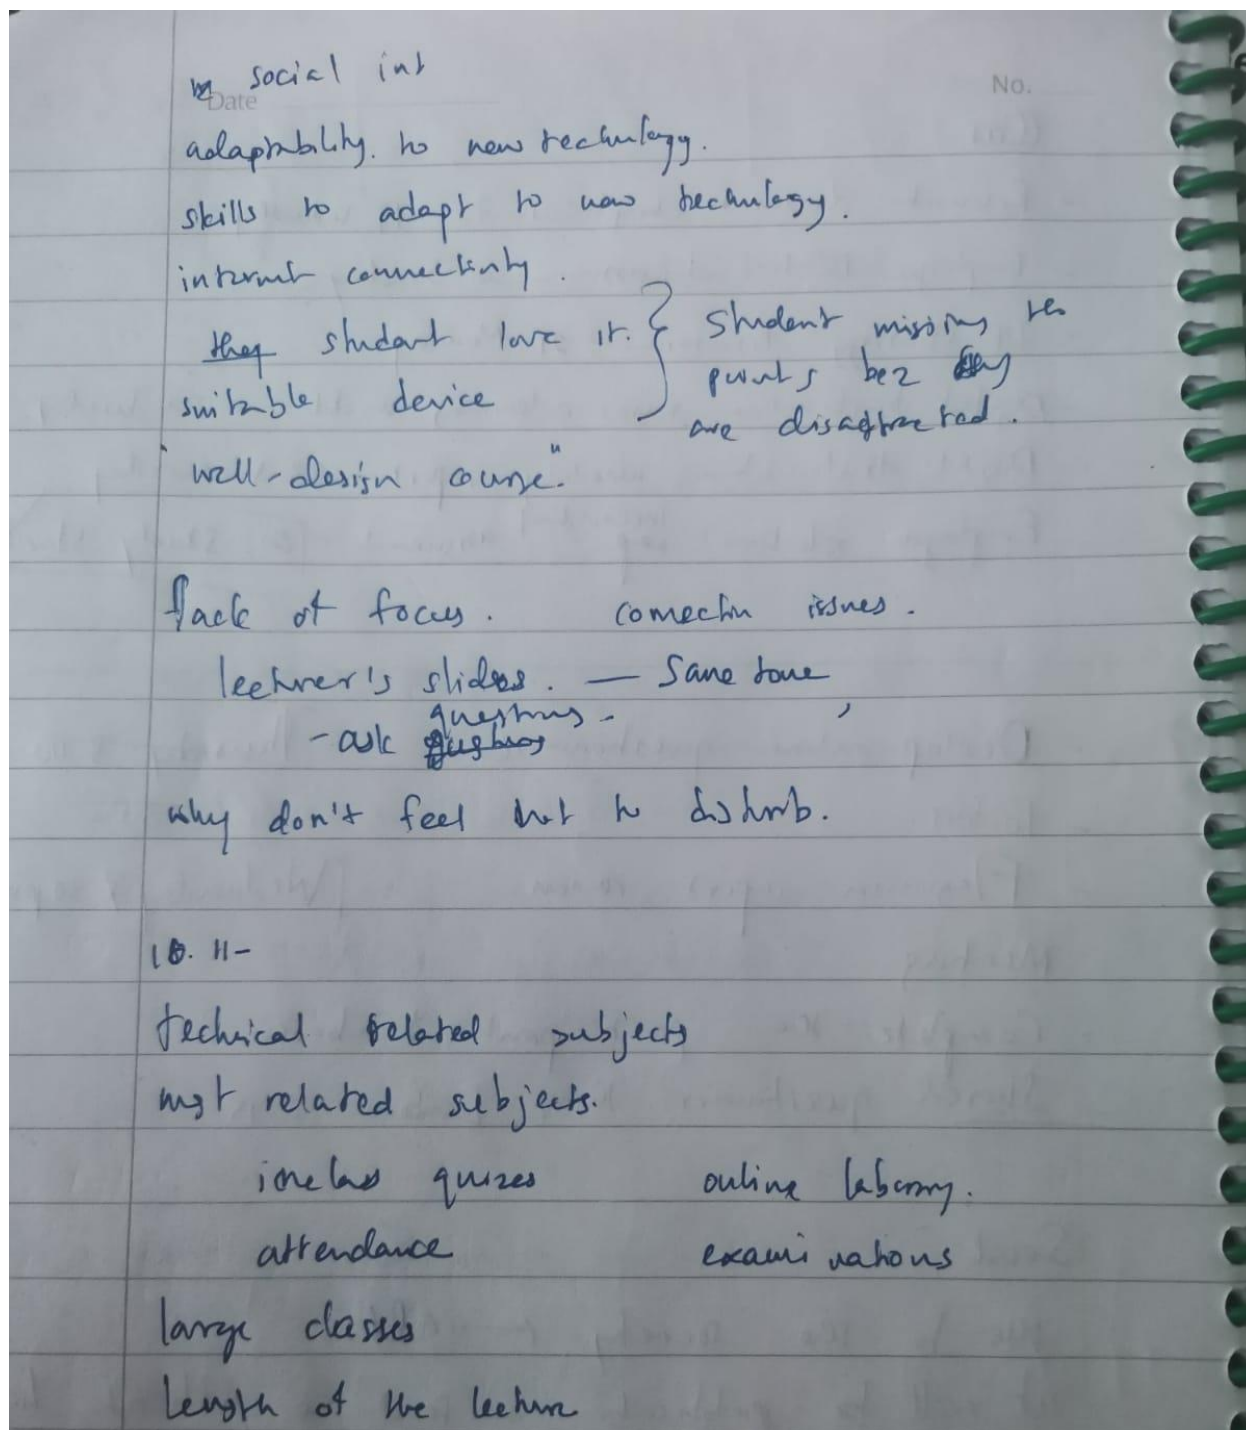 social int
Date No.
adaptability. to new technology.
skills to adapt to new technology.
internet connectivity.
they student love it. } student missing the
suitable device points bcz
are disattracted.
"well-design course".
lack of focus. connection issues.
lecturer's slides. — Same tone
questions -
- ask
why don't feel to disturb.
10. 11-
technical related subjects
mgt related subjects.
inclass quizes online labarory.
attendance examinations
large classes
length of the lecture